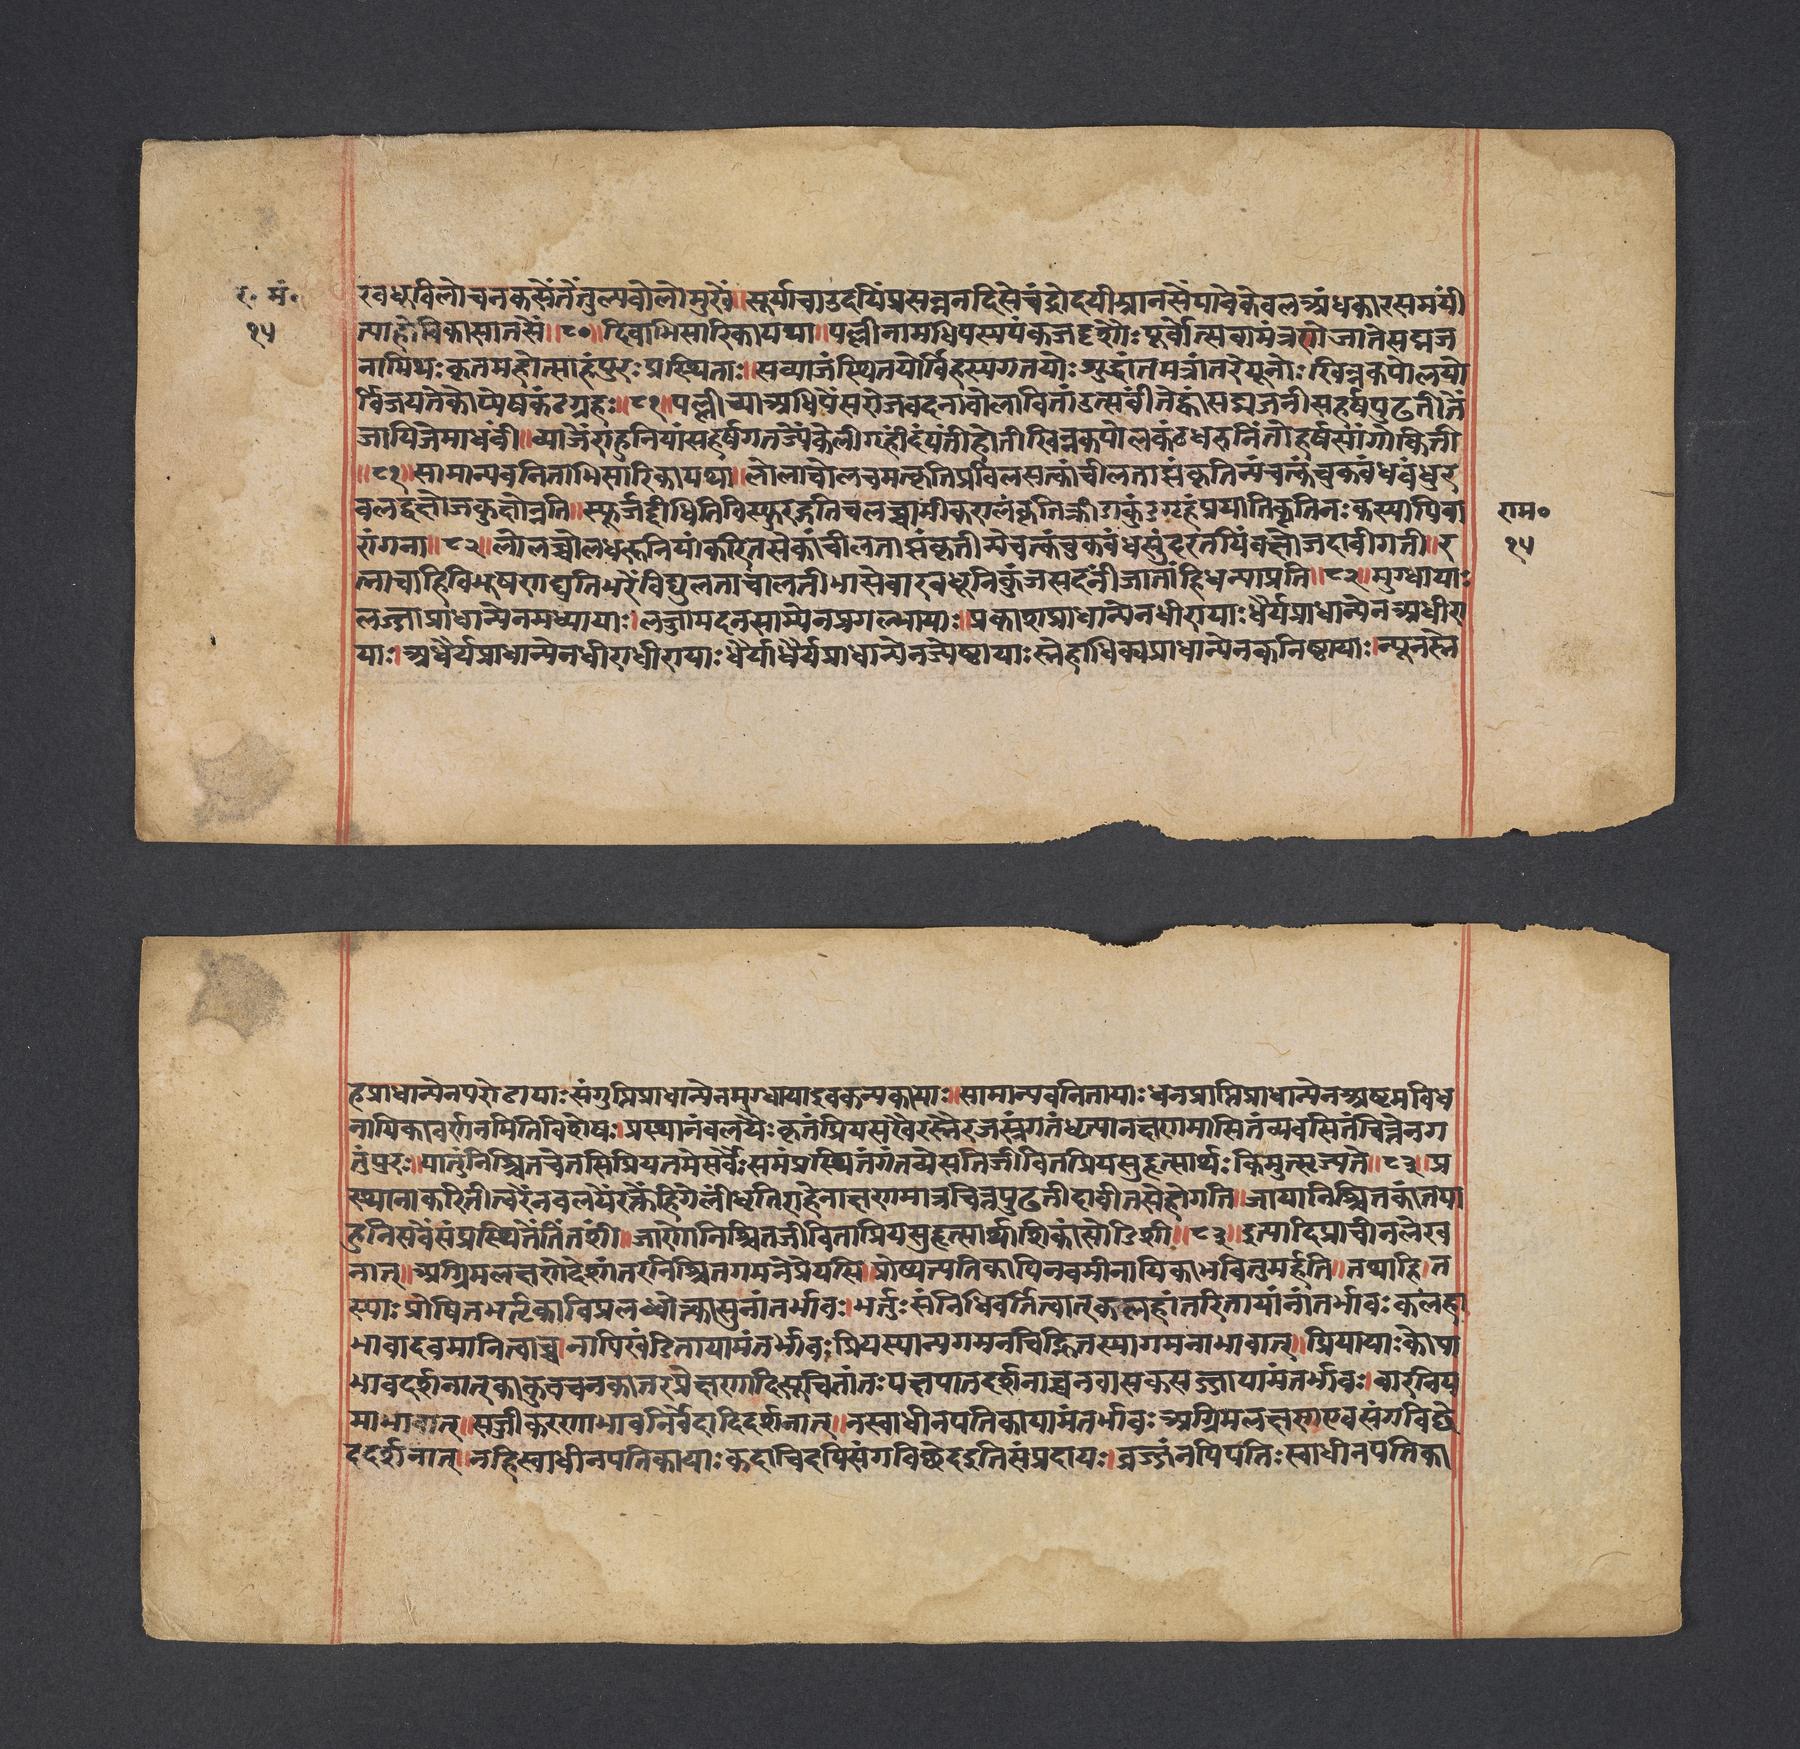 र. मं.
१५
रवधुविलोचनकसेंतेंतुल्यबोलोमुखें॥सूर्याचाउदयिंप्रसन्ननदिसेचंद्रोदयीआनसेंपावेकेवलअंधकारसमयीं
त्याहोविकासातसें॥८०॥दिवाभिसारिकायथा॥पल्लीनामधिपस्यपंकजदृशोःपूर्वोत्सवामंत्रणेजातेसद्मज
नामिथःकृतमहोत्साहंपुरःप्रस्थिताः॥सव्याजंस्थितयोर्विहस्यगतयोःशुद्धांतमत्रांतरेयूनोःखिन्नकपोलयो
र्विजयतेकोप्येषकंठग्रहः॥८१॥पल्लीच्याअधिपेंसरोजवदनाबोलावितांउत्सवींतेव्हांसद्मजनींसहर्षपुढतींतें
जायिजेमाधवीं॥व्याजेंराहुनियांसहर्षगतज्येकेलीगृहींदंपतीहोतीखिन्नकपोलकंठधरुनिंतोहर्षसांगोकिती
॥८१॥सामान्यवनिताभिसारिकायथा॥लोलाचोलचमत्कृतिप्रविलसत्कांचीलताझंकृतिन्यंचत्कंचुकबंधबंधुर
चलद्वक्षोजकुंभोन्नति॥स्फूर्जद्दीधितिविस्फुरद्गतिचलच्चामीकरालंकृतिक्रीडाकुंजगृहंप्रयातिकृतिनःकस्यापिवा
रांगना॥८२॥लोलच्चोलधरूनियांकरितसेकांचीलताझंकृतीन्यंचत्कंचुकबंधसुंदरतयिंवक्षोजहावीगती॥र
त्नाचाहिविभूषणद्युतिभरेंविद्युलताचालतीभासेवारवधूनिकुंजसदनींजातांहिधन्याप्रति॥८२॥मुग्धायाः
लज्जाप्राधान्येनमध्यायाः।लज्जामदनसाम्येनप्रगल्भायाः॥प्रकाशप्राधान्येनधीरायाःधैर्यप्राधान्येनअधीरा
याः।अधैर्यप्राधान्येनधीराधीरायाःधैर्याधैर्यप्राधान्येनज्येष्ठायाःस्नेहाधिक्यप्राधान्येनकनिष्ठायाः।न्यूनस्ने
राम०
१५
हप्राधान्येनपरोढायाःसंगुप्तिप्राधान्येनमुग्धायाइवकन्यकायाः॥सामान्यवनितायाःधनप्राप्तिप्राधान्येनअष्टमविध
नायिकावर्णनमितिविशेषः।प्रस्थानंवलयैःकृतंप्रियसखैरस्रैरजस्रंगतंधृत्यानक्षणमासितंव्यवसितंचित्तेनग
तुंपुरः॥यातुंनिश्चितचेतसिप्रियतमेसर्वैःसमंप्रस्थितंगंतव्येसतिजीवितप्रियसुहृत्सार्थःकिमुत्सृज्यते॥८३॥प्र
स्थानाकरितीत्वरेंनवलयेंरक्तेंहिंगेलींधृतिराहेनाक्षणमात्रचित्तपुढतीहावीतसेहोगति॥जायानिश्चितकांतपा
हुनिसवेंसंप्रस्थितेंतिंतशीं॥जाणेंनिश्चितजीविताप्रियसुहृत्सार्थाशिकांसोडिशी॥८३॥इत्यादिप्राचीनलेख
नात्॥अग्रिमलक्षणेदेशांतरनिश्चितगमनेप्रेयसि।प्रोष्यत्पतिकापिनवमीनायिकाभवितुमर्हति॥तथाहि।त
स्याःप्रोषितभर्तृकाविप्रलब्धोत्कासुनांतर्भावः।भर्तुःसंनिधिवर्तित्वात्कलहांतरितायांनांतर्भावःकलहा
भावादवमानित्वाच्च।नापिखंडितायामंतर्भावःप्रियस्यान्यगमनचिह्नितस्यागमनाभावात्॥प्रियायाःकोपा
भावदर्शनात्काकुवचनकातरप्रेक्षणादिसूचितांतःपक्षपातदर्शनाच्चनवासकसज्जायामंतर्भावः।वारनिय
माभावात्॥सज्जीकरणाभावनिर्वेदादिदर्शनात्॥नस्वाधीनपतिकायामंतर्भावःअग्रिमलक्षणएवसंगविच्छे
ददर्शनात्।नहिस्वाधीनपतिकायाःकदाचिदपिसंगविच्छेदइतिसंप्रदायः।व्रजन्नपिपतिःस्वाधीनपतिका